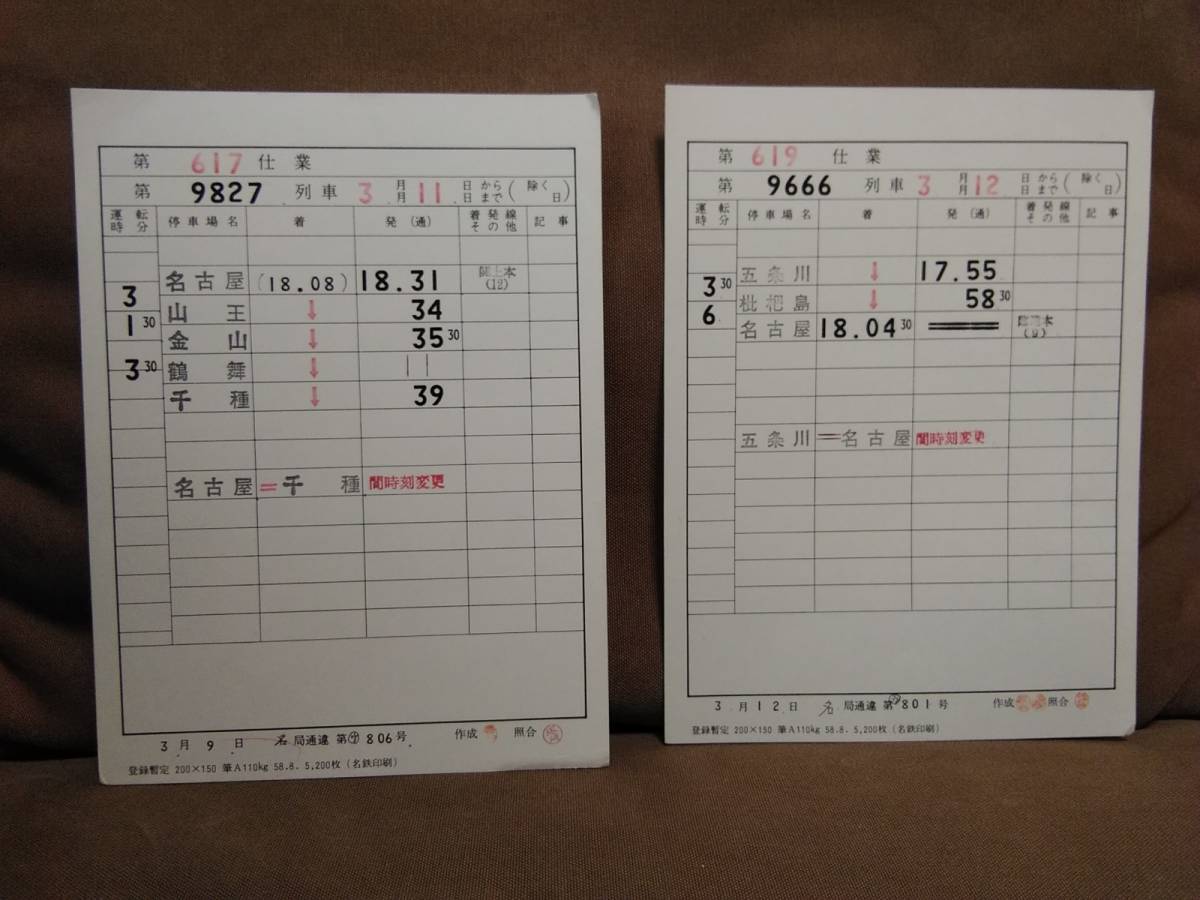 第 617 仕業
第 9827 列車 3 月 11 日から (除く
月 日まで 日)
運転時分 停車場名 着 発(通) 着発線その他 記事
名古屋 (18.08) 18.31 (12)
3
山王 ↓ 34
1 30
金山 ↓ 35 30
3 30
鶴舞 ↓ | |
千種 ↓ 39
名古屋=千種 間時刻変更
3月9日 名局通達 第 806号 作成 照合
登録暫定 200×150 筆A110kg 58.8. 5,200枚 (名鉄印刷)
第 619 仕業
第 9666 列車 3 月 12 日から (除く
月 日まで 日)
運転時分 停車場名 着 発(通) 着発線その他 記事
五条川 ↓ 17.55
3 30
枇杷島 ↓ 58 30
6
名古屋 18.04 30 (9)
五条川=名古屋 間時刻変更
3月12日 名局通達 第 801号 作成 照合
登録暫定 200×150 筆A110kg 58.8. 5,200枚 (名鉄印刷)